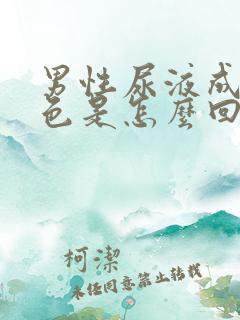 男性尿液成
色是怎麼回
柯潔
未经同意禁止转载